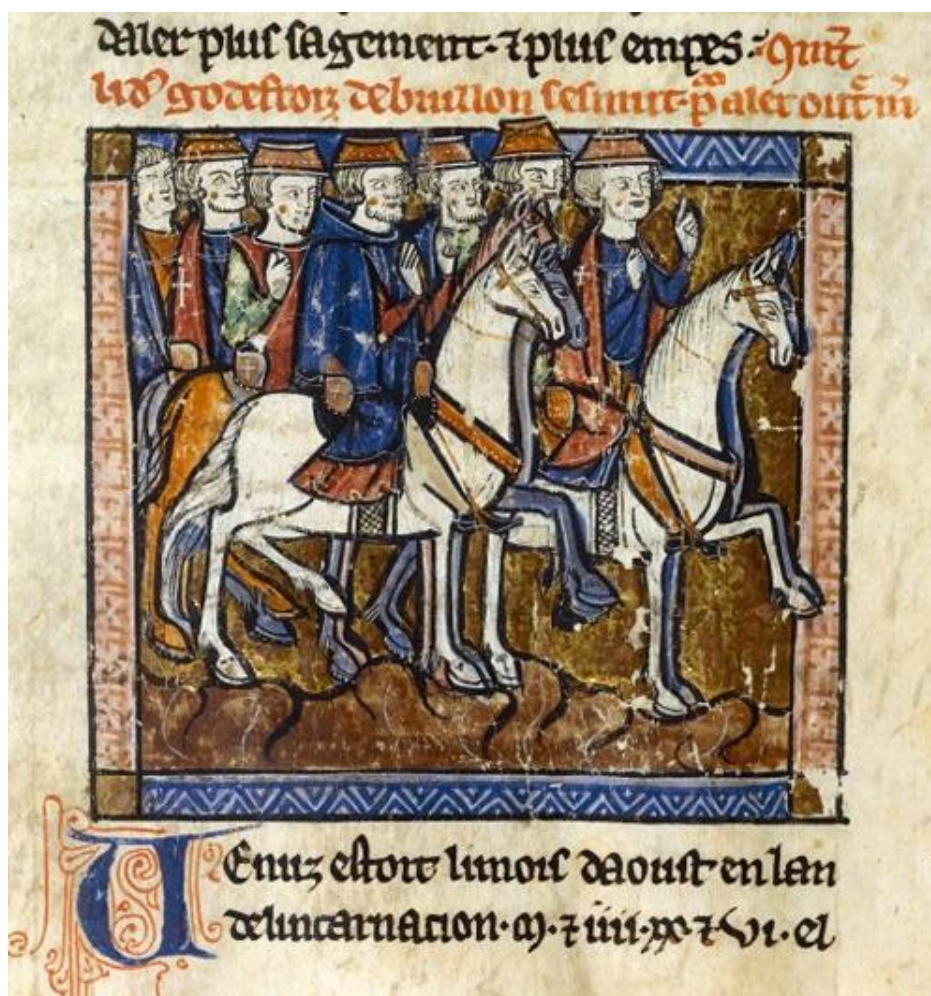 daler plus sagement· ⁊ plus empes· Qnt
lidꝰ godefroiz debuillon sesmut· aler
Venuz estoit limois daoust en lan
delincarnacion· m· ⁊ iiii· xx· ⁊ vi· el